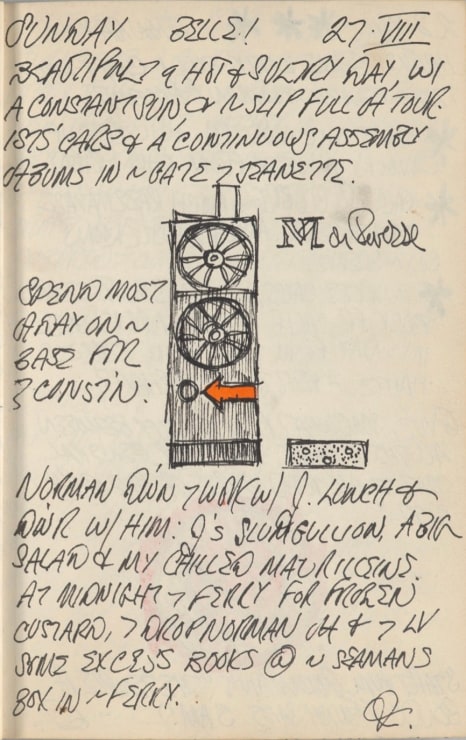 SUNDAY BELLE! 27·VIII
BEAUTIFUL & A HOT & SULTRY DAY, W/
A CONSTANT SUN, & ~ SLIP FULL OF TOUR-
ISTS' CARS & A CONTINUOUS ASSEMBLY
OF BUMS IN ~ GATE 7 JEANETTE.
M
SPEND MOST
OF DAY ON ~
BASE FOR
7 CONST'N:
NORMAN DWN 7 WORK W/ J. LUNCH &
DINR W/ HIM: J's SLUMGULLION, A BIG
SALAD & MY CHILLED
AT MIDNIGHT 7 FERRY FOR FROZEN
CUSTARD, 7 DROP NORMAN OFF & 7 LV
SOME EXCESS BOOKS @ ~ SEAMANS
BOX IN ~ FERRY.